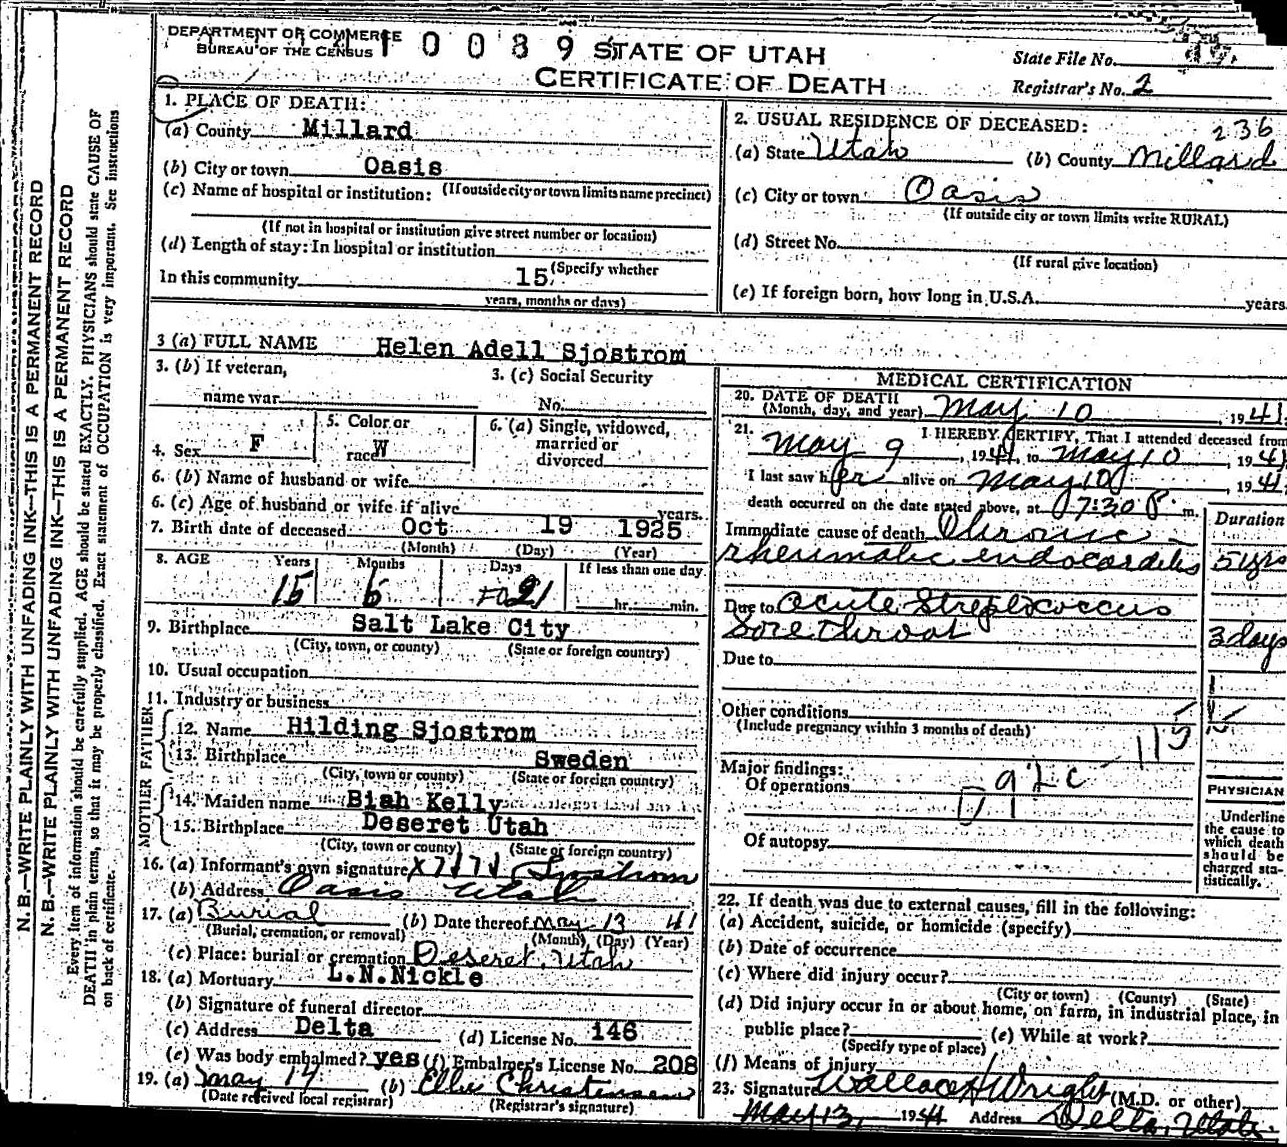 DEPARTMENT OF COMMERCE
BUREAU OF THE CENSUS
10089
STATE OF UTAH
CERTIFICATE OF DEATH
State File No.
Registrar's No. 2
1. PLACE OF DEATH:
(a) County Millard
(b) City or town Oasis
(c) Name of hospital or institution: (If outside city or town limits name precinct)
(If not in hospital or institution give street number or location)
(d) Length of stay: In hospital or institution
(Specify whether
In this community 15
years, months or days)
2. USUAL RESIDENCE OF DECEASED: 236
(a) State Utah (b) County Millard
(c) City or town Oasis
(If outside city or town limits write RURAL)
(d) Street No.
(If rural give location)
(e) If foreign born, how long in U.S.A. years
3 (a) FULL NAME Helen Adell Sjostrom
3. (b) If veteran, name war
3. (c) Social Security No.
4. Sex F
5. Color or race W
6. (a) Single, widowed, married or divorced
6. (b) Name of husband or wife
6. (c) Age of husband or wife if alive years.
7. Birth date of deceased Oct 19 1925
(Month) (Day) (Year)
8. AGE Years Months Days If less than one day
15 6 21 hr. min.
9. Birthplace Salt Lake City
(City, town, or county) (State or foreign country)
10. Usual occupation
11. Industry or business
FATHER
12. Name Hilding Sjostrom
13. Birthplace Sweden
(City, town or county) (State or foreign country)
MOTHER
14. Maiden name Biah Kelly
15. Birthplace Deseret Utah
(City, town or county) (State or foreign country)
16. (a) Informant's own signature Sjostrom
(b) Address Oasis Utah
17. (a) Burial (b) Date thereof May 13 41
(Burial, cremation, or removal) (Month) (Day) (Year)
(c) Place: burial or cremation Deseret, Utah
18. (a) Mortuary L.N.Nickle
(b) Signature of funeral director
(c) Address Delta (d) License No. 146
(e) Was body embalmed? yes (f) Embalmer's License No. 208
19. (a) May 14 (b) Christensen
(Date received local registrar) (Registrar's signature)
MEDICAL CERTIFICATION
20. DATE OF DEATH
(Month, day, and year) May 10, 1941
21. I HEREBY CERTIFY, That I attended deceased from
May 9, 1941, to May 10, 1941
I last saw her alive on May 10 1941
death occurred on the date stated above, at 7:30 P m.
Duration
Immediate cause of death Chronic
rheumatic endocarditis 5 yrs
Due to acute Streptococcus
Sore throat 3 days
Due to
Other conditions
(Include pregnancy within 3 months of death)
115
Major findings:
Of operations
Of autopsy
PHYSICIAN
Underline the cause to which death should be charged statistically.
22. If death was due to external causes, fill in the following:
(a) Accident, suicide, or homicide (specify)
(b) Date of occurrence
(c) Where did injury occur?
(City or town) (County) (State)
(d) Did injury occur in or about home, on farm, in industrial place, in
public place? (e) While at work?
(Specify type of place)
(f) Means of injury
23. Signature Wallace H Wright (M.D. or other)
May 13, 1941 Address Delta, Utah.
N. B.—WRITE PLAINLY WITH UNFADING INK—THIS IS A PERMANENT RECORD
N. B.—WRITE PLAINLY WITH UNFADING INK—THIS IS A PERMANENT RECORD
Every item of information should be carefully supplied. AGE should be stated EXACTLY. PHYSICIANS should state CAUSE OF
DEATH in plain terms, so that it may be properly classified. Exact statement of OCCUPATION is very important. See instructions
on back of certificate.